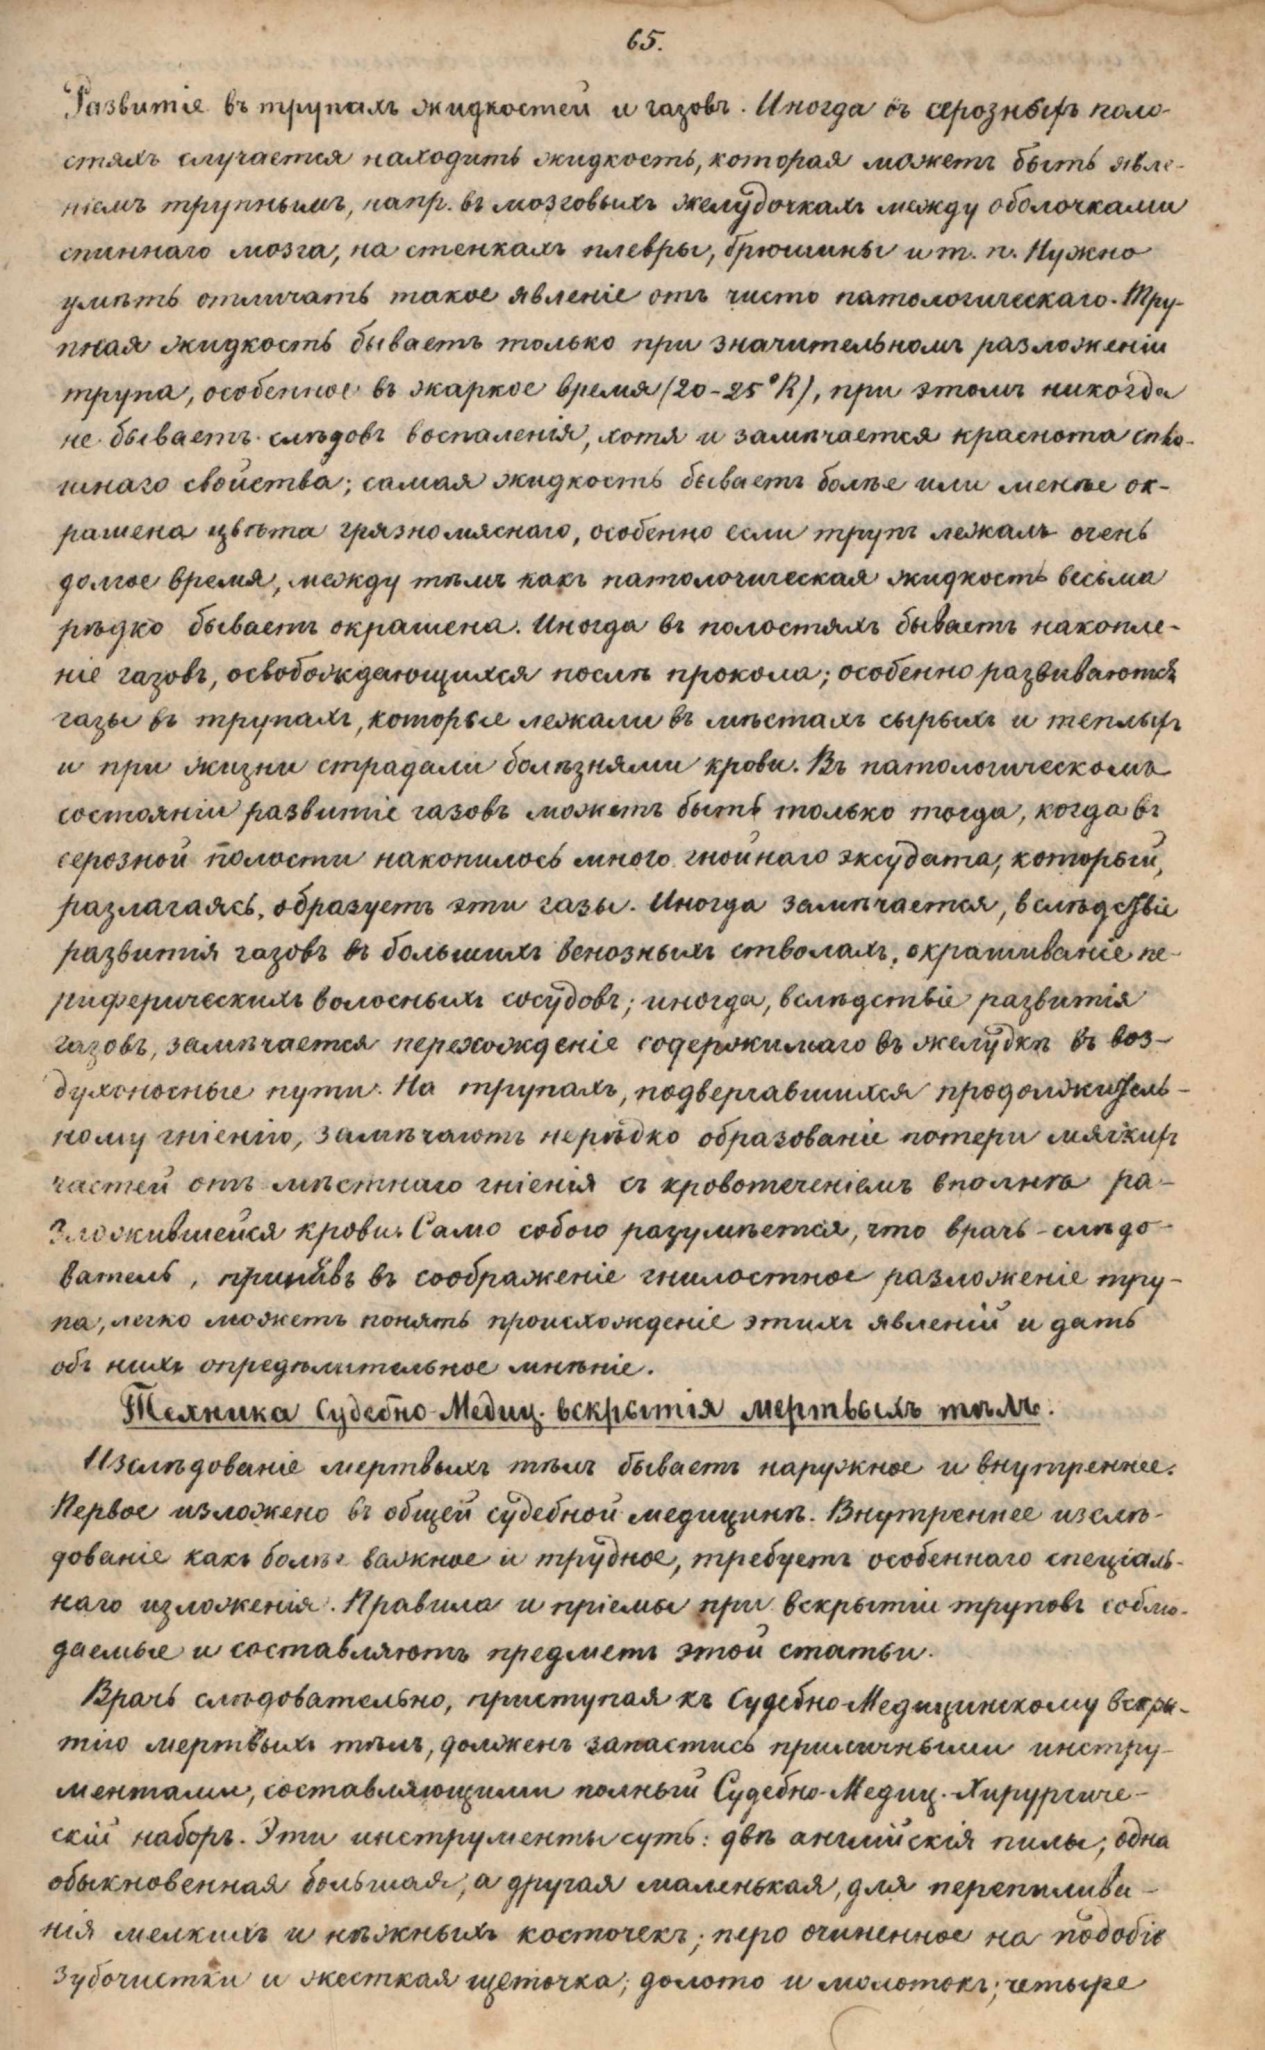 65.
Развитіе въ трупахъ жидкостей и газовъ. Иногда въ серозныхъ поло-
стяхъ случается находить жидкость, которая можетъ быть явле-
ніемъ трупнымъ, напр. въ мозговыхъ желудочкахъ между оболочками
спиннаго мозга, на стенкахъ плевры, брюшины и т. п. Нужно
умѣть отличать такое явленіе отъ чисто патологическаго. Тру-
пная жидкость бываетъ только при значительномъ разложеніи
трупа, особенное въ жаркое время (20-25°R), при этомъ никогда
не бываетъ слѣдовъ воспаленія, хотя и замѣчается краснота спло-
шнаго свойства; самая жидкость бываетъ болѣе или менѣе ок-
рашена цвѣта грязномяснаго, особенно если трупъ лежалъ очень
долгое время, между тѣмъ какъ патологическая жидкость весьма
рѣдко бываетъ окрашена. Иногда въ полостяхъ бываетъ накопле-
ніе газовъ, освобождающихся послѣ прокола; особенно развиваются
газы въ трупахъ, которые лежали въ мѣстахъ сырыхъ и теплыхъ
и при жизни страдали болѣзнями крови. Въ патологическомъ
состояніи развитіе газовъ можетъ быть только тогда, когда въ
серозной полости накопилось много гнойнаго эксудата, который,
разлагаясь, образуетъ эти газы. Иногда замѣчается, вслѣдствіе
развитія газовъ въ большихъ венозныхъ стволахъ, окрашиваніе пе-
риферическихъ волосныхъ сосудовъ; иногда, вслѣдствіе развитія
газовъ, замѣчается перехожденіе содержимаго въ желудкѣ въ воз-
духоносные пути. На трупахъ, подвергавшихся продолжитель-
ному гніенію, замѣчаютъ нерѣдко образованіе потери мягкихъ
частей отъ мѣстнаго гніенія съ кровотеченіемъ вполнѣ ра-
зложившейся крови. Само собою разумѣется, что врачъ-слѣдо-
ватель, принявъ въ соображеніе гнилостное разложеніе тру-
па, легко можетъ понять происхожденіе этихъ явленій и дать
объ нихъ опредѣлительное мнѣніе.
Техника Судебно-Медиц. вскрытія мертвыхъ тѣлъ.
Изслѣдованіе мертвыхъ тѣлъ бываетъ наружное и внутреннее.
Первое изложено въ общей судебной медицинѣ. Внутреннее изслѣ-
дованіе какъ болѣе важное и трудное, требуетъ особеннаго спеціаль-
наго изложенія. Правила и пріемы при вскрытіи труповъ соблю-
даемые и составляютъ предметъ этой статьи.
Врачъ слѣдовательно, приступая къ Судебно-Медицинскому вскры-
тію мертвыхъ тѣлъ, долженъ запастись приличными инстру-
ментами, составляющими полный Судебно-Медиц.-Хирургиче-
скій наборъ. Эти инструменты суть: двѣ англійскія пилы, одна
обыкновенная большая, а другая маленькая, для перепилива-
нія мелкихъ и нѣжныхъ косточекъ; перо очиненное на подобіе
зубочистки и жесткая щеточка; долото и молотокъ; четыре